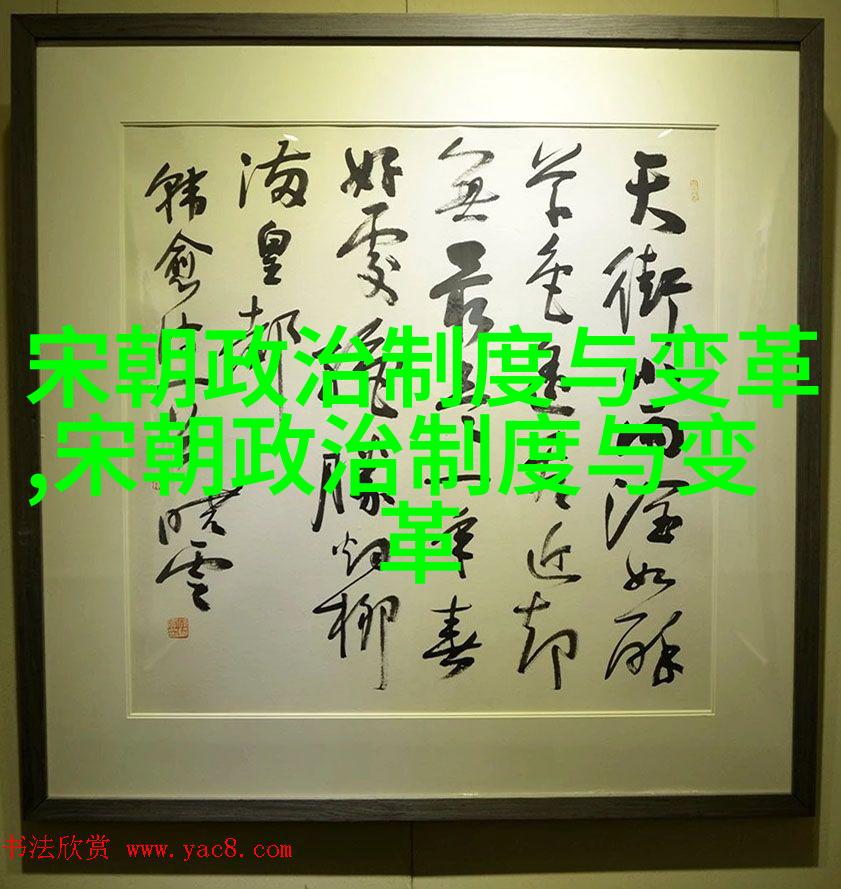 天街小雨润如酥
草色遥看近却
无最是一年春
好处绝胜烟柳
满皇都
韩愈诗一首 晓云
宋朝政治制度与变革
,宋朝政治制度与变
革
书法欣赏 www.yac8.com